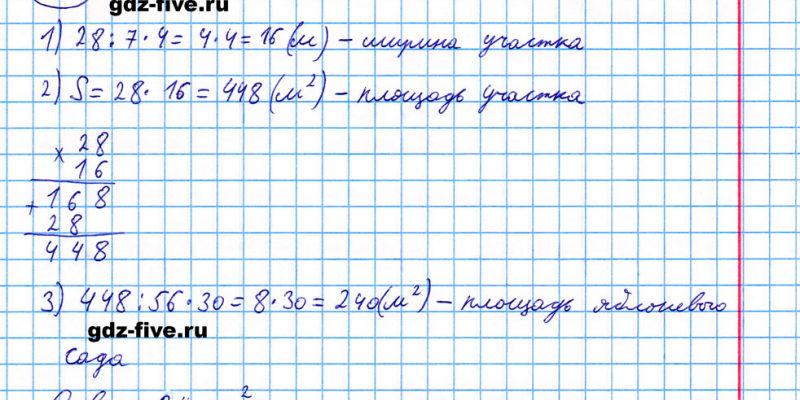 gdz-five.ru
1) 28 : 7 · 4 = 4 · 4 = 16 (м) – ширина участка
2) S = 28 · 16 = 448 (м²) – площадь участка
× 28
16
+ 168
28
448
3) 448 : 56 · 30 = 8 · 30 = 240 (м²) – площадь яблоневого
gdz-five.ru
сада